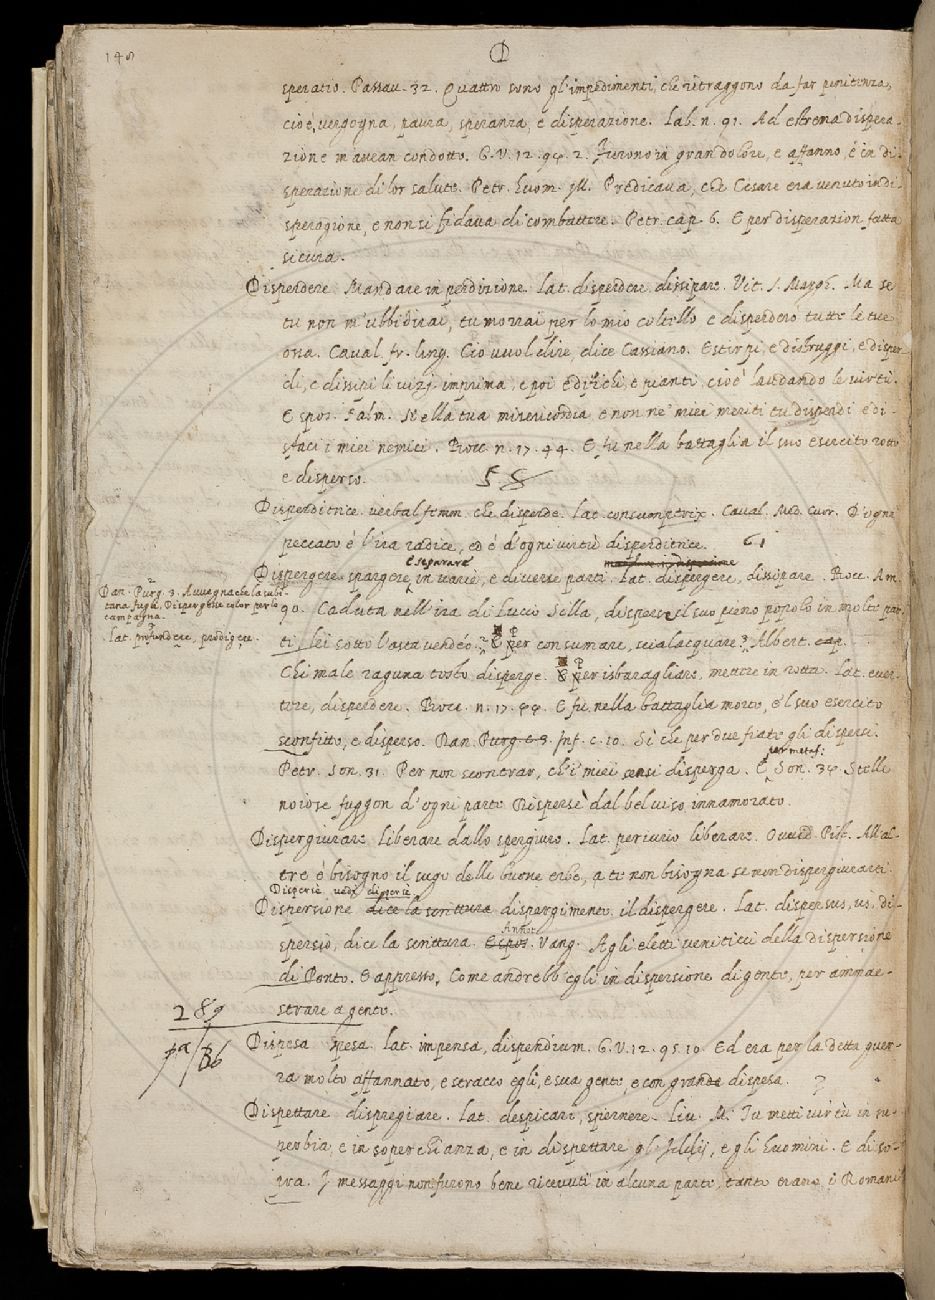 148
D
speratio. Passau. 32. Quattro sono gl'impedimenti, che ritraggono da far penitenza,
cioè, vergogna, paura, speranza, e disperazione. Lab. n. 91. Ad estrema dispera-
zione m'avean condotto. G.V. 12. 94. 2. Furono in gran dolore, e affanno, e in di-
sperazione di lor salute. Petr. huom. Predicava, che Cesare era venuto in di-
speragione, e non si fidava di combattere. Petr. cap. 6. E per disperazion fatta
sicura.
Disperdere Mandare in perdizione. Lat. disperdere dissipare. Vit. S. Ma se
tu non m'ubbidirai, tu morrai per lo mio coltello e disperdero tutte le tue
ossa. Caval. fr. ling. Cio vuol dire, dice Cassiano. Estirpi, e distruggi, e disper
di, e dissipi li vizj imprima, e poi edifichi, e pianti, cioè laudando le virtù.
Espos. Salm. Nella tua misericordia e non ne' miei meriti tu disperdi e di-
sfaci i miei nemici. Bocc. n. 17. 44. E fu nella battaglia il suo esercito rotto
e disperso.
Disperditrice. verbal femm. che disperde. Lat. consumptrix. Caval. Med. Cuor. D'ogni
peccato è l'ira radice, ed è d'ogni virtù disperditrice. 61
e separare
Dispergere spargere in varie, e diverse parti. Lat. dispergere, dissipare. Bocc. Am.
Dan. Purg. 3. Avvegnache la subi-
tana fuga, Dispergesse color per la
campagna.
Lat. profundere, prodigere.
90. Caduta nell'ira di Lucio Silla, disperse il suo pieno popolo in molte par
ti, lei sotto l'asta vendéo. 2 E per consumare, scialacquare. 3 Albert. cap.
Chi male raguna tosto disperge. E per isbaragliare, mettere in rotta. Lat. ever-
tere, disperdere. Bocc. n. 17. 44. E fu nella battaglia morto, e'l suo esercito
sconfitto, e disperso. Dan. Purg. c. 3. Inf. c. 10. Sì che per due fiate gli dispersi.
per metaf:
Petr. Son. 31. Per non scontrar, ch'i miei sensi disperga. E Son. 34. Stelle
noiose fuggon d'ogni parte Disperse dal bel viso innamorato.
Dispergiurare Liberare dallo spergiuro. Lat. periurio liberare. Ovvid. Pist. All'al-
tre è bisogno il sugo delle buone erbe, a te non bisogna se non dispergiurarti.
Dispersè vedi disperse
Dispersione dice la scrittura dispergimento. il dispergere. Lat. dispersus, us, di-
Annot.
spersio, dice la scrittura Espos. Vang. Agli eletti veniticci della dispersione
di Ponto. E appresso, Come andrebb'egli in dispersione di gente, per ammae-
strare a gente.
289
Dispesa spesa. Lat. impensa, dispendium. G.V. 12. 95. 10. Ed era per la detta guer-
ra molto affannato, e stracco egli, e sua gente, e con grande dispesa.
Dispettare dispregiare. Lat. despicari, spernere. Liv. M. Tu metti virtù in su-
perbia, e in soperchianza, e in dispettare gl'Iddij, e gli huomini. E di so-
pra. I messaggi non furono bene ricevuti in alcuna parte, tanto erano i Romani